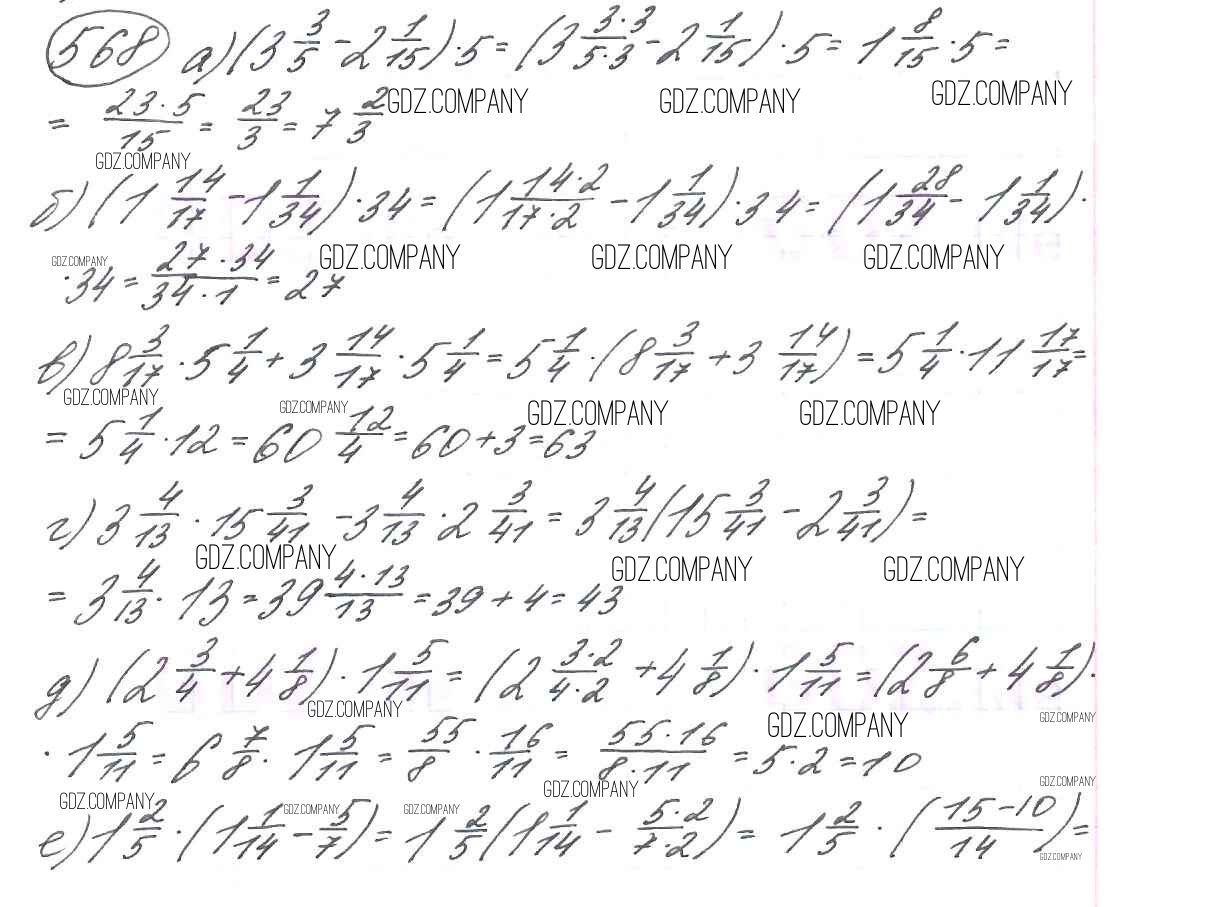 568 а) (3 3/5 - 2 1/15) · 5 = (3 3·3/5·3 - 2 1/15) · 5 = 1 8/15 · 5 =
= 23·5/15 = 23/3 = 7 2/3 GDZ.COMPANY GDZ.COMPANY GDZ.COMPANY
GDZ.COMPANY
б) (1 14/17 - 1 1/34) · 34 = (1 14·2/17·2 - 1 1/34) · 34 = (1 28/34 - 1 1/34) ·
GDZ.COMPANY GDZ.COMPANY GDZ.COMPANY GDZ.COMPANY
· 34 = 27·34/34·1 = 27
в) 8 3/17 · 5 1/4 + 3 14/17 · 5 1/4 = 5 1/4 · (8 3/17 + 3 14/17) = 5 1/4 · 11 17/17 =
GDZ.COMPANY GDZ.COMPANY GDZ.COMPANY GDZ.COMPANY
= 5 1/4 · 12 = 60 12/4 = 60 + 3 = 63
г) 3 4/13 · 15 3/41 - 3 4/13 · 2 3/41 = 3 4/13 (15 3/41 - 2 3/41) =
GDZ.COMPANY GDZ.COMPANY GDZ.COMPANY
= 3 4/13 · 13 = 39 4·13/13 = 39 + 4 = 43
д) (2 3/4 + 4 1/8) · 1 5/11 = (2 3·2/4·2 + 4 1/8) · 1 5/11 = (2 6/8 + 4 1/8) ·
GDZ.COMPANY GDZ.COMPANY GDZ.COMPANY
· 1 5/11 = 6 7/8 · 1 5/11 = 55/8 · 16/11 = 55·16/8·11 = 5 · 2 = 10
GDZ.COMPANY GDZ.COMPANY GDZ.COMPANY GDZ.COMPANY GDZ.COMPANY
е) 1 2/5 · (1 1/14 - 5/7) = 1 2/5 (1 1/14 - 5·2/7·2) = 1 2/5 · (15-10/14) =
GDZ.COMPANY